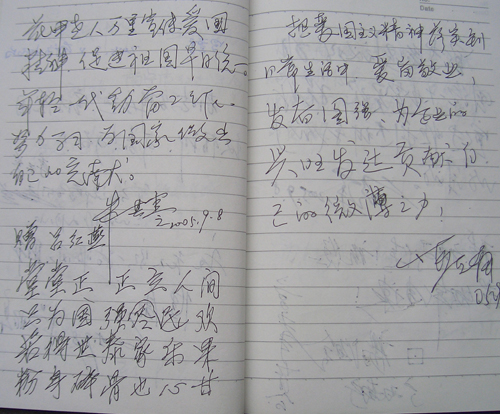 花甲老人万里宣传爱国
精神 促进祖国早日统一。
年轻一代勤奋工作、
努力学习 为国家做出
自己的贡献!
2005.9.8
赠 吕红燕
堂堂正正立人间
只为国强民欢
若得世泰家
粉身碎骨也心甘
把爱国主义精神落实到
日常生活中 爱岗敬业,
发奋图强、为企业的
兴旺发达贡献自
己的微薄之力!